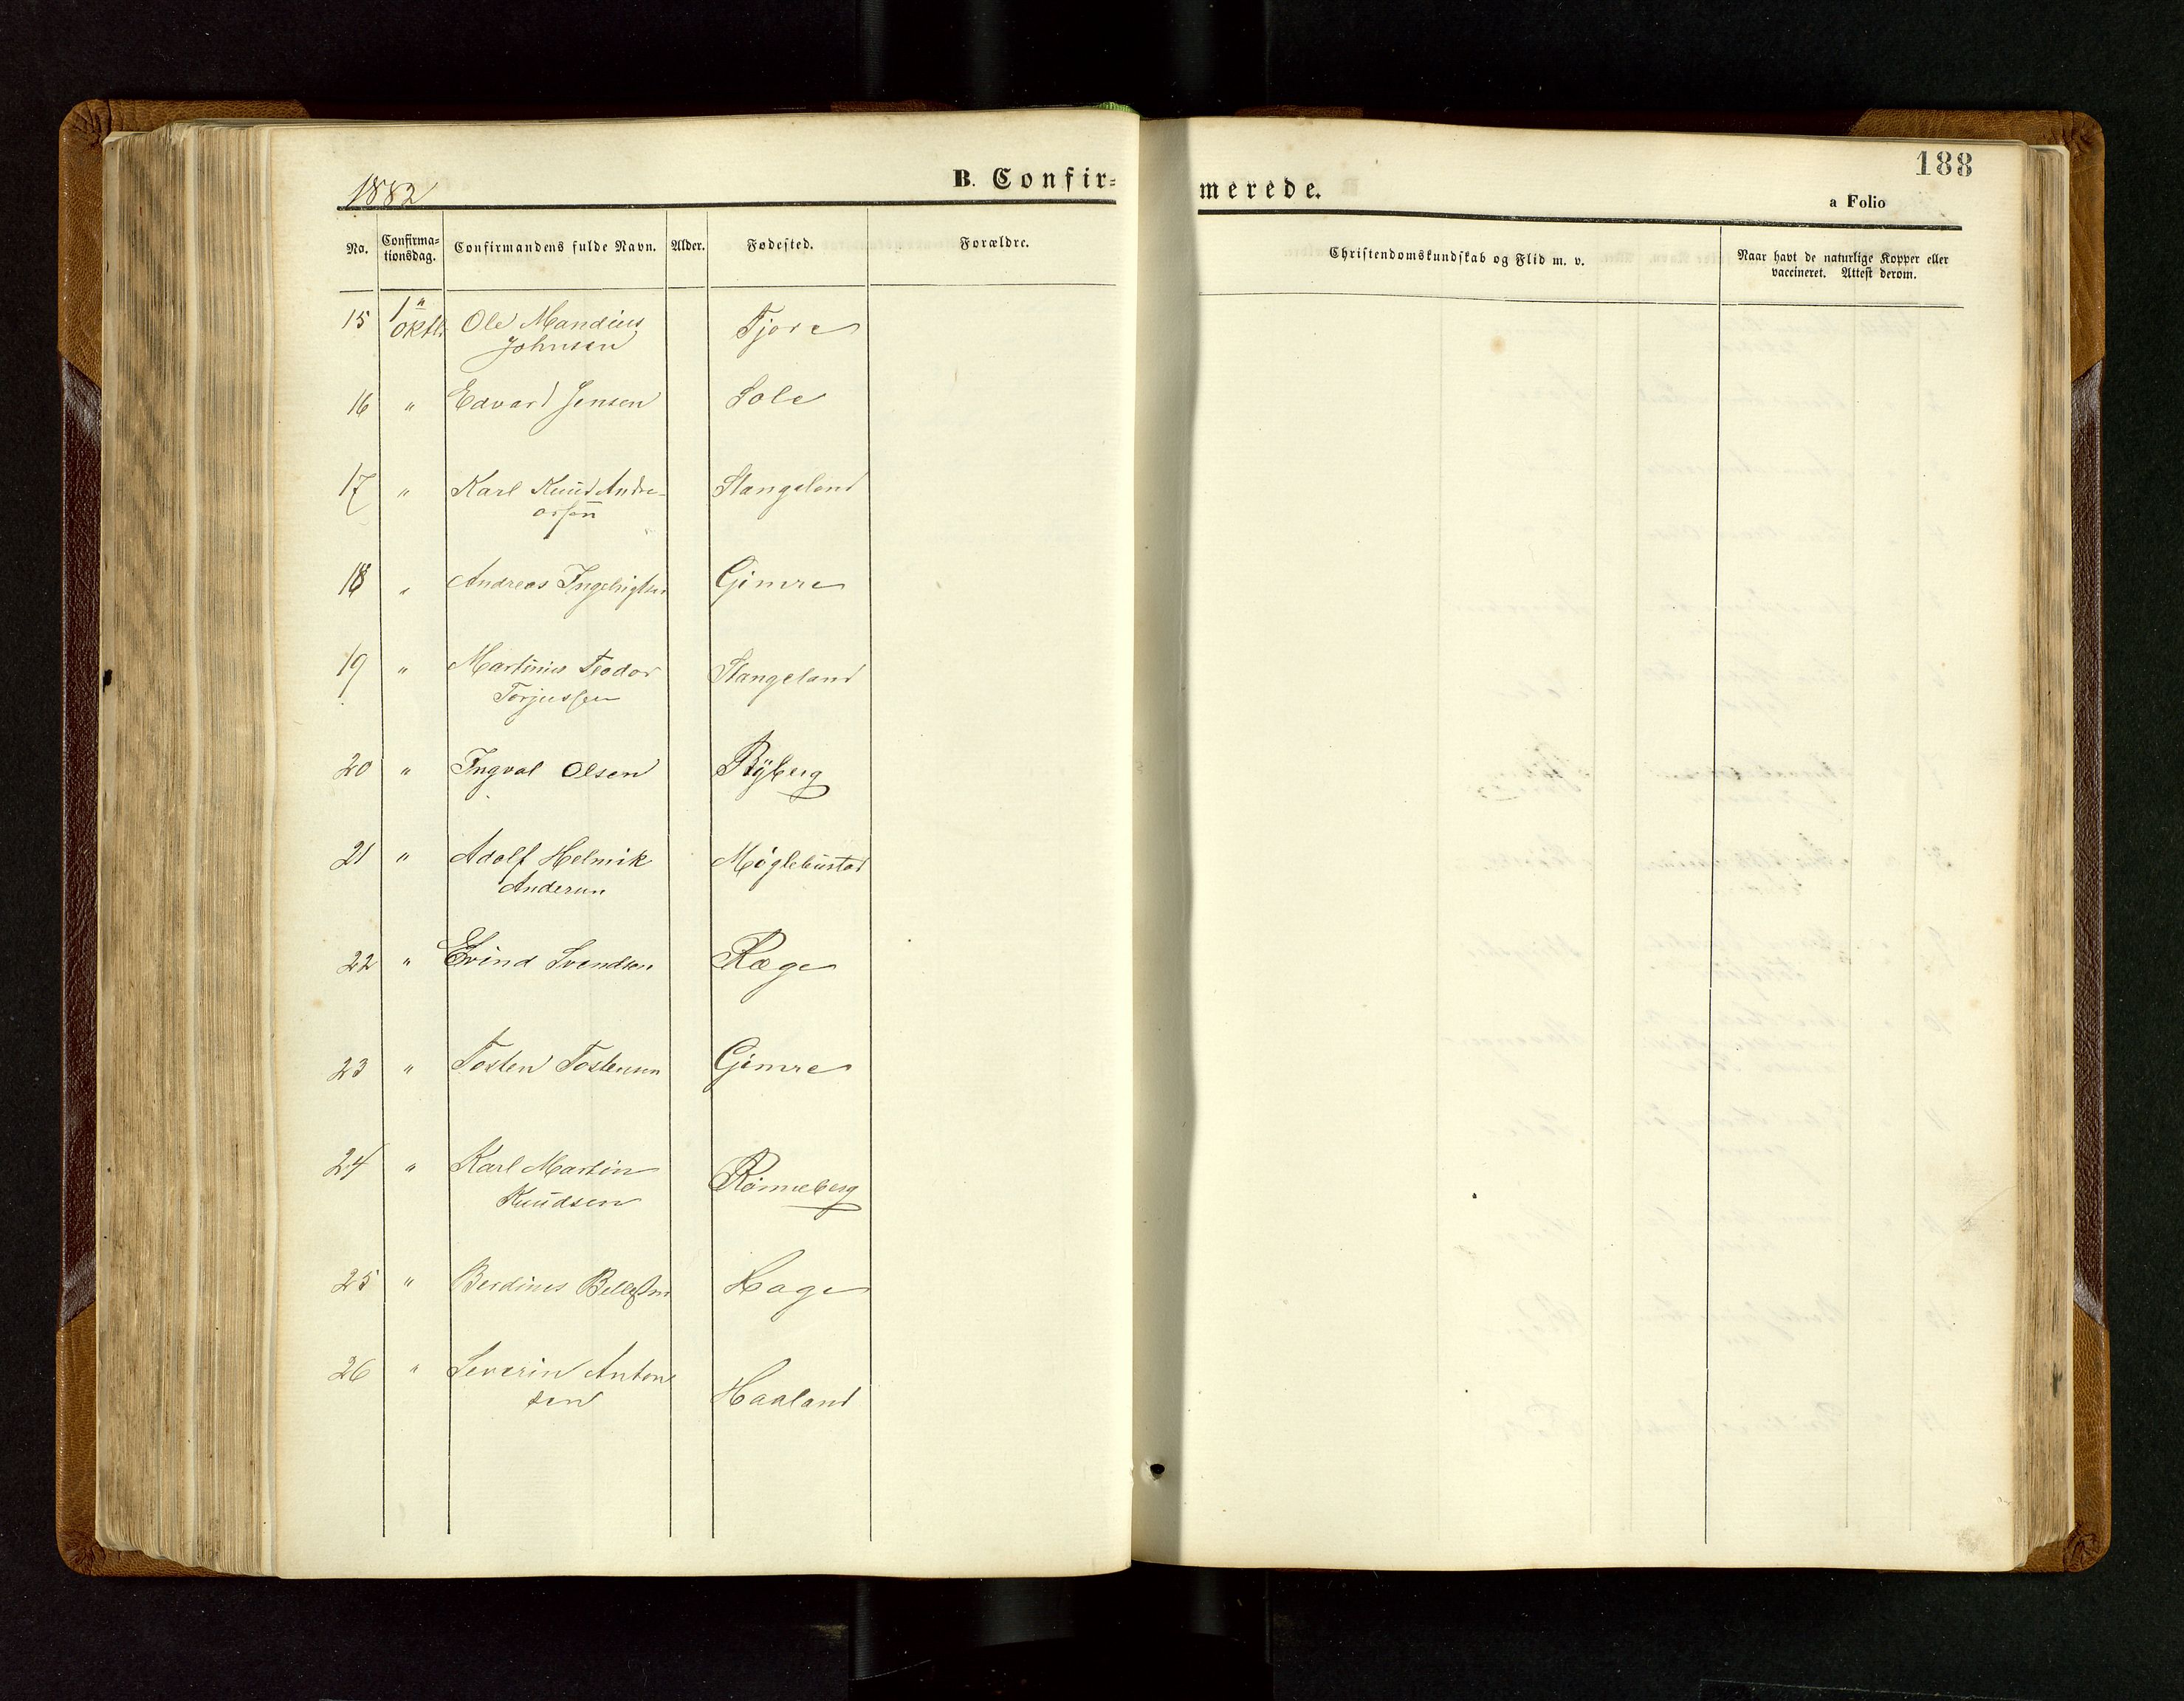 1882
B. Confir-
merede.
188
a Folio
No. Confirma-tionsdag. Confirmandens fulde Navn. Alder. Fødested. Forældre. Christendomskundskab og Flid m. v. Naar havt de naturlige Kopper eller vaccineret. Attest derom.
15 1" Oktb. Ole Mandius Tjore
Johnsen
16 " Edvard Jensen Sole
17 " Karl Knud Andre- Stangeland
assen
18 " Andreas Ingebrigtsen Gimre
19 " Martinius Teodor Stangeland
Torjussen
20 " Ingval Olsen Ryberg
21 " Adolf Helmik Møglebustad
Andersen
22 " Eivind Svendsen Ræge
23 " Tosten Tostensen Gimre
24 " Karl Martin Rønneberg
Knudsen
25 " Berdines Hage
26 " Severin Anton
sen Haaland